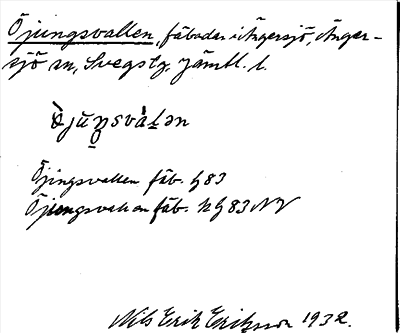 Öjungsvallen, fäbodar i Ängersjö, Änger-
sjö sn, Svegs tg. Jämtl. l.
Öjingsvallen fäb. G 83
Öjungsvallen fäb. K G 83 NV
Nils Erik Eriksson 1932.